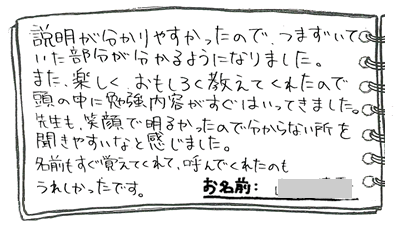 説明が分かりやすかったので、つまずいて
いた部分が分かるようになりました。
また、楽しく、おもしろく教えてくれたので
頭の中に勉強内容がすぐはいってきました。
先生も、笑顔で明るかったので分からない所を
聞きやすいなと感じました。
名前もすぐ覚えてくれて、呼んでくれたのも
うれしかったです。
お名前: